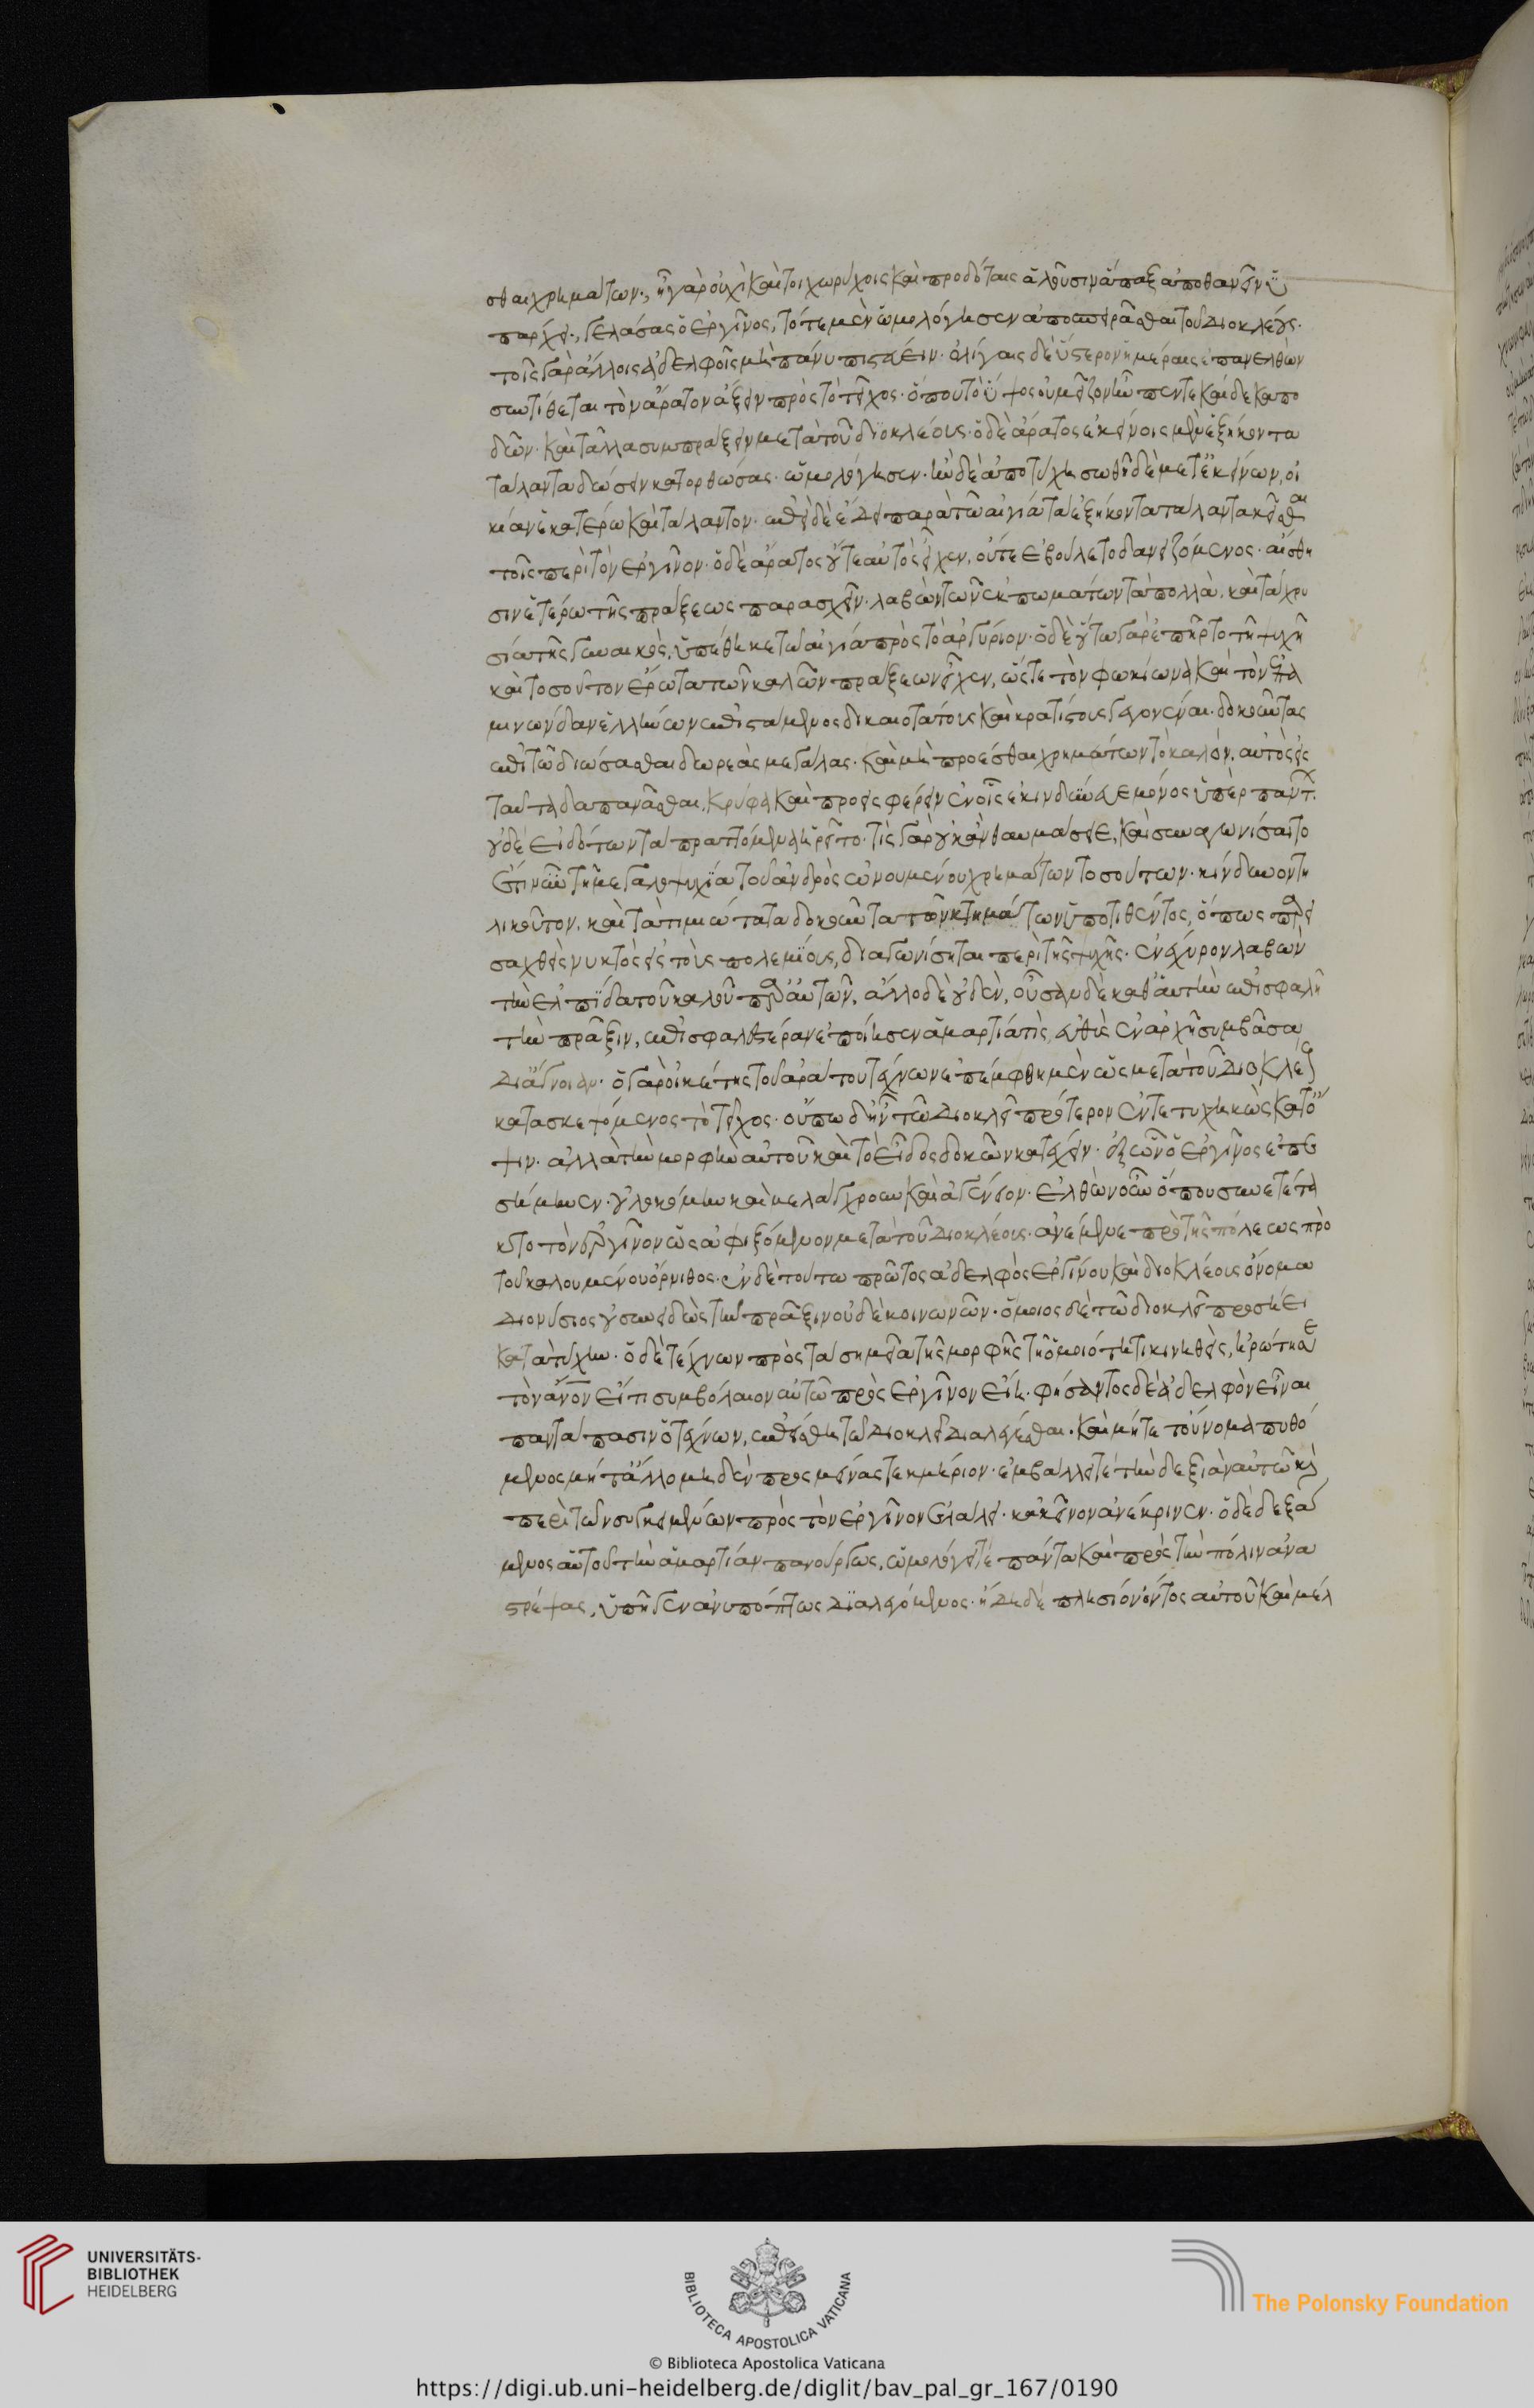 σθαι χρημάτων., ἦ γὰρ οὐχὶ καὶ τοιχωρύχοις καὶ προδόταις ἁλοῦσιν ἅπαξ ἀποθανεῖν ὑ
πάρχει., γελάσας ὁ ἐργῖνος, τότε μὲν ὡμολόγησεν ἀποπειρᾶσθαι τοῦ διοκλέους.
τοῖς γὰρ ἄλλοις ἀδελφοῖς μὴ πάνυ πιστεύειν. ὀλίγαις δὲ ὕστερον ἡμέραις ἐπανελθὼν
συντίθεται τὸν ἄρατον ἄξειν πρὸς τὸ τεῖχος. ὅπου τὸ ὕψος οὐ μεῖζον ἦν πεντεκαίδεκα πο
δῶν. καὶ τἄλλα συμπράξειν μετὰ τοῦ διοκλέους. ὁ δὲ ἄρατος ἐκείνοις μὲν ἑξήκοντα
τάλαντα δώσειν κατορθώσας. ὡμολόγησεν. ἢν δὲ ἀποτύχῃ σωθῇ δὲ μετ' ἐκείνων, οἰ
κίαν ἑκατέρω καὶ τάλαντον. ἐπεὶ δὲ ἔδει παρὰ τῶ αἰγία τὰ ἑξήκοντα τάλαντα κεῖσθαι
τοῖς περὶ τὸν ἐργῖνον. ὁ δὲ ἄρατος οὔτε αὐτὸς εἶχεν, οὔτε ἐβούλετο δανειζόμενος. αἴσθη
σιν ἑτέρω τῆς πράξεως παρασχεῖν. λαβὼν τῶν ἐκπωμάτων τὰ πολλὰ. καὶ τὰ χρυ
σία τῆς γυναικὸς, ὑπέθηκε τῶ αἰγία πρὸς τὸ ἀργύριον. ὁ δὲ οὕτω γὰρ ἐπῆρτο τῆ ψυχῆ
καὶ τοσοῦτον ἔρωτα τῶν καλῶν πράξεων εἶχεν, ὥστε τὸν φωκίωνα καὶ τὸν ἐπα
μινώνδαν ἑλλήνων ἐπιστάμενος δικαιοτάτους καὶ κρατίστους γεγονέναι. δοκοῦντας
ἐπὶ τῶ διώσασθαι δωρεὰς μεγάλας. καὶ μὴ προέσθαι χρημάτων τὸ καλόν. αὐτὸς εἰς
ταῦτα δαπανᾶσθαι, κρύφα καὶ προεισφέρειν ἐν οἷς ἐκινδύνευε μόνος ὑπὲρ πάντ.
οὐδὲ εἰδότων τὰ πραττόμενα ᾑρεῖτο. τίς γὰρ οὐκ ἂν θαυμάσειε, καὶ συναγωνίσαιτο
ἔτι νῦν τῆ μεγαλοψυχία τοῦ ἀνδρὸς ὠνουμένου χρημάτων τοσούτων. κίνδυνον τη
λικοῦτον. καὶ τὰ τιμιώτατα δοκοῦντα τῶν κτημάτων ὑποτιθέντος, ὅπως παρει
σαχθεὶς νυκτὸς εἰς τοὺς πολεμίους, διαγωνίσηται περὶ τῆς ψυχῆς. ἐνέχυρον λαβὼν
τὴν ἐλπίδα τοῦ καλοῦ παρ' αὐτῶν, ἄλλο δὲ οὐδὲν, οὖσαν δὲ καθ' αὑτὴν ἐπισφαλῆ
τὴν πρᾶξιν, ἐπισφαλεστέραν ἐποίησεν ἁμαρτία τὶς, εὐθὺς ἐν ἀρχῆ συμβᾶσα
δι' ἄγνοιαν. ὁ γὰρ οἰκέτης τοῦ ἀράτου τέχνων ἐπέμφθη μὲν ὡς μετὰ τοῦ διοκλέους
κατασκεψόμενος τὸ τεῖχος. οὔπω δ' ἦν τῶ διοκλεῖ πρότερον ἐντετυχηκὼς κατ' ὄ
ψιν. ἀλλὰ τὴν μορφὴν αὐτοῦ καὶ τὸ εἶδος δοκῶν κατέχειν. ἐξ ὧν ὁ ἐργῖνος ἐπε
σήμηνεν. οὐλοκόμην καὶ μελάγχρουν καὶ ἀγένειον. ἐλθὼν οὖν ὅπου συνετέτα
κτο τὸν ἐργῖνον ὡς ἀφιξόμενον μετὰ τοῦ διοκλέους. ἀνέμενε πρὸ τῆς πόλεως πρὸ
τοῦ καλουμένου ὄρνιθος. ἐν δὲ τούτω πρῶτος ἀδελφὸς ἐργίνου καὶ διοκλέους ὄνομα
διονύσιος οὐ συνειδὼς τὴν πρᾶξιν οὐδὲ κοινωνῶν. ὅμοιος δὲ τῶ διοκλεῖ προσήει
κατὰ τύχην. ὁ δὲ τέχνων πρὸς τὰ σημεῖα τῆς μορφῆς τῆ ὁμοιότητι κινηθεὶς, ἠρώτησε
τὸν ἄνον εἴ τι συμβόλαιον αὐτῶ πρὸς ἐργῖνον εἴη. φήσαντος δὲ ἀδελφὸν εἶναι
παντάπασιν ὁ τέχνων, ἐπείσθη τῶ διοκλεῖ διαλέγεσθαι. καὶ μήτε τοὔνομα πυθό
μενος μήτ' ἄλλο μηδὲν προσμείνας τεκμήριον. ἐμβάλλει τε τὴν δεξιὰν αὐτῶ καὶ
περὶ τῶν συγκειμένων πρὸς τὸν ἐργῖνον ἐλάλει. κἀκεῖνον ἀνέκρινεν. ὁ δὲ δεξά
μενος αὐτοῦ τὴν ἁμαρτίαν πανούργως, ὡμολόγει τε πάντα καὶ πρὸς τὴν πόλιν ἀνα
στρέψας, ὑπῆγεν ἀνυπόπτως διαλεγόμενος. ἤδη δὲ πλησίον ὄντος αὐτοῦ καὶ μέλ
UNIVERSITÄTS-
BIBLIOTHEK
HEIDELBERG
BIBLIOTECA APOSTOLICA VATICANA
The Polonsky Foundation
© Biblioteca Apostolica Vaticana
https://digi.ub.uni-heidelberg.de/diglit/bav_pal_gr_167/0190